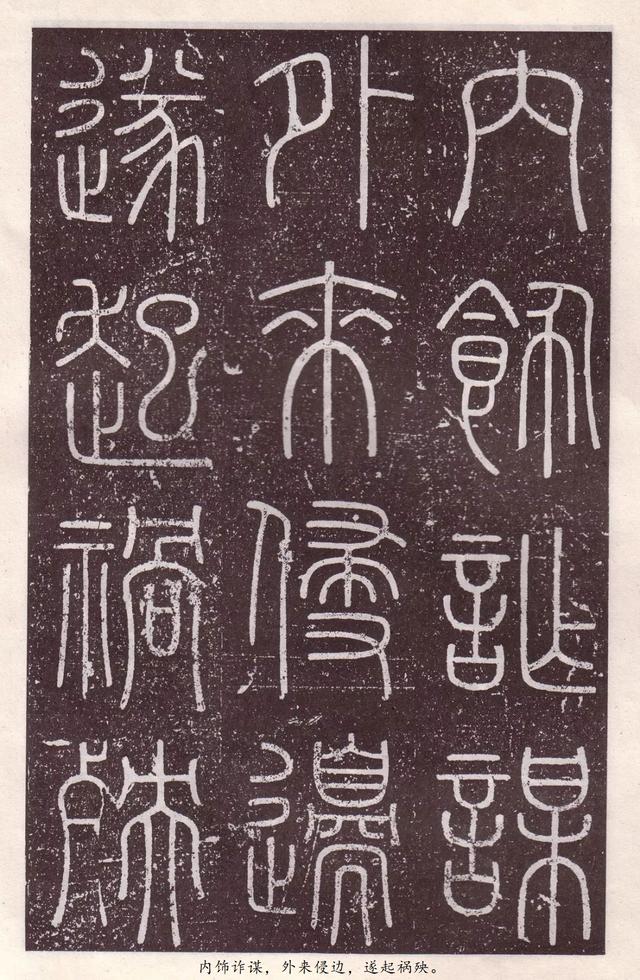 内飾詐謀
外来侵邊
遂起禍殃
内饰诈谋，外来侵边，遂起祸殃。